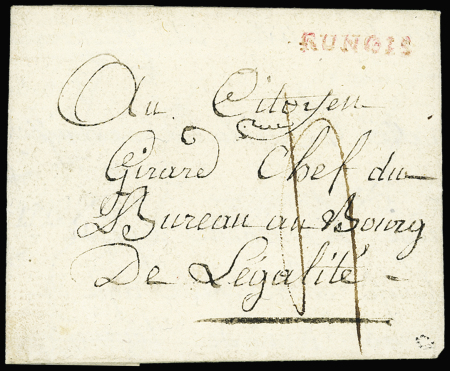 RUNGIS
Au Citoyen
Girard Chef du
Bureau au Bourg
De Légalité